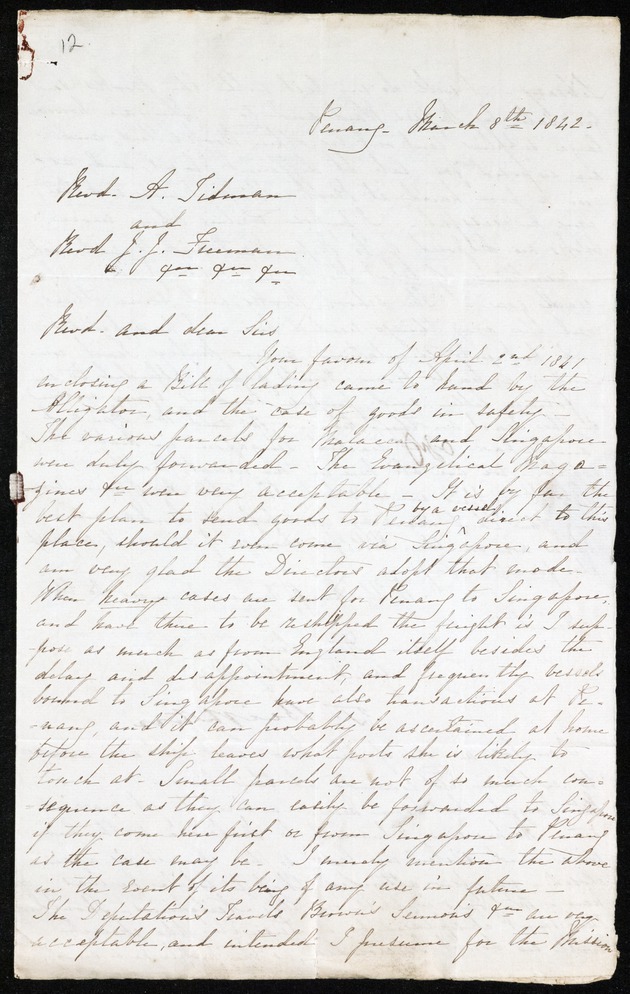 12
Penang - March 8th 1842 -
Revd. A. Tidman
and
Revd J. J. Freeman
&c &c &c
Revd. and dear Sirs
Your favour of April 2nd 1841
inclosing a Bill of lading came to hand by the
Alligator, and the case of goods in safety -
The various parcels for Malacca and Singapore
were duly forwarded - The Evangelical Maga=
zines &c were very acceptable - It is by far the
best plan to send goods to Penang by a vessel direct to this
place, should it even come via Singapore, and
am very glad the Directors adopt that mode -
When heavy cases are sent for Penang to Singapore,
and have there to be reshipped the freight is I sup-
pose as much as from England itself besides the
delay and disappointment, and frequently vessels
bound to Singapore have also transactions at Pe-
-nang, and it can probably be ascertained at home
before the ship leaves what ports she is likely to
touch at - Small parcels are not of so much con=
-sequence as they can easily be forwarded to Singapore
if they come here first or from Singapore to Penang
as the case may be - I merely mention the above
in the event of its being of any use in future -
The Deputation's Travels, Brown's Sermons &c are very
acceptable, and intended I presume for the Mission